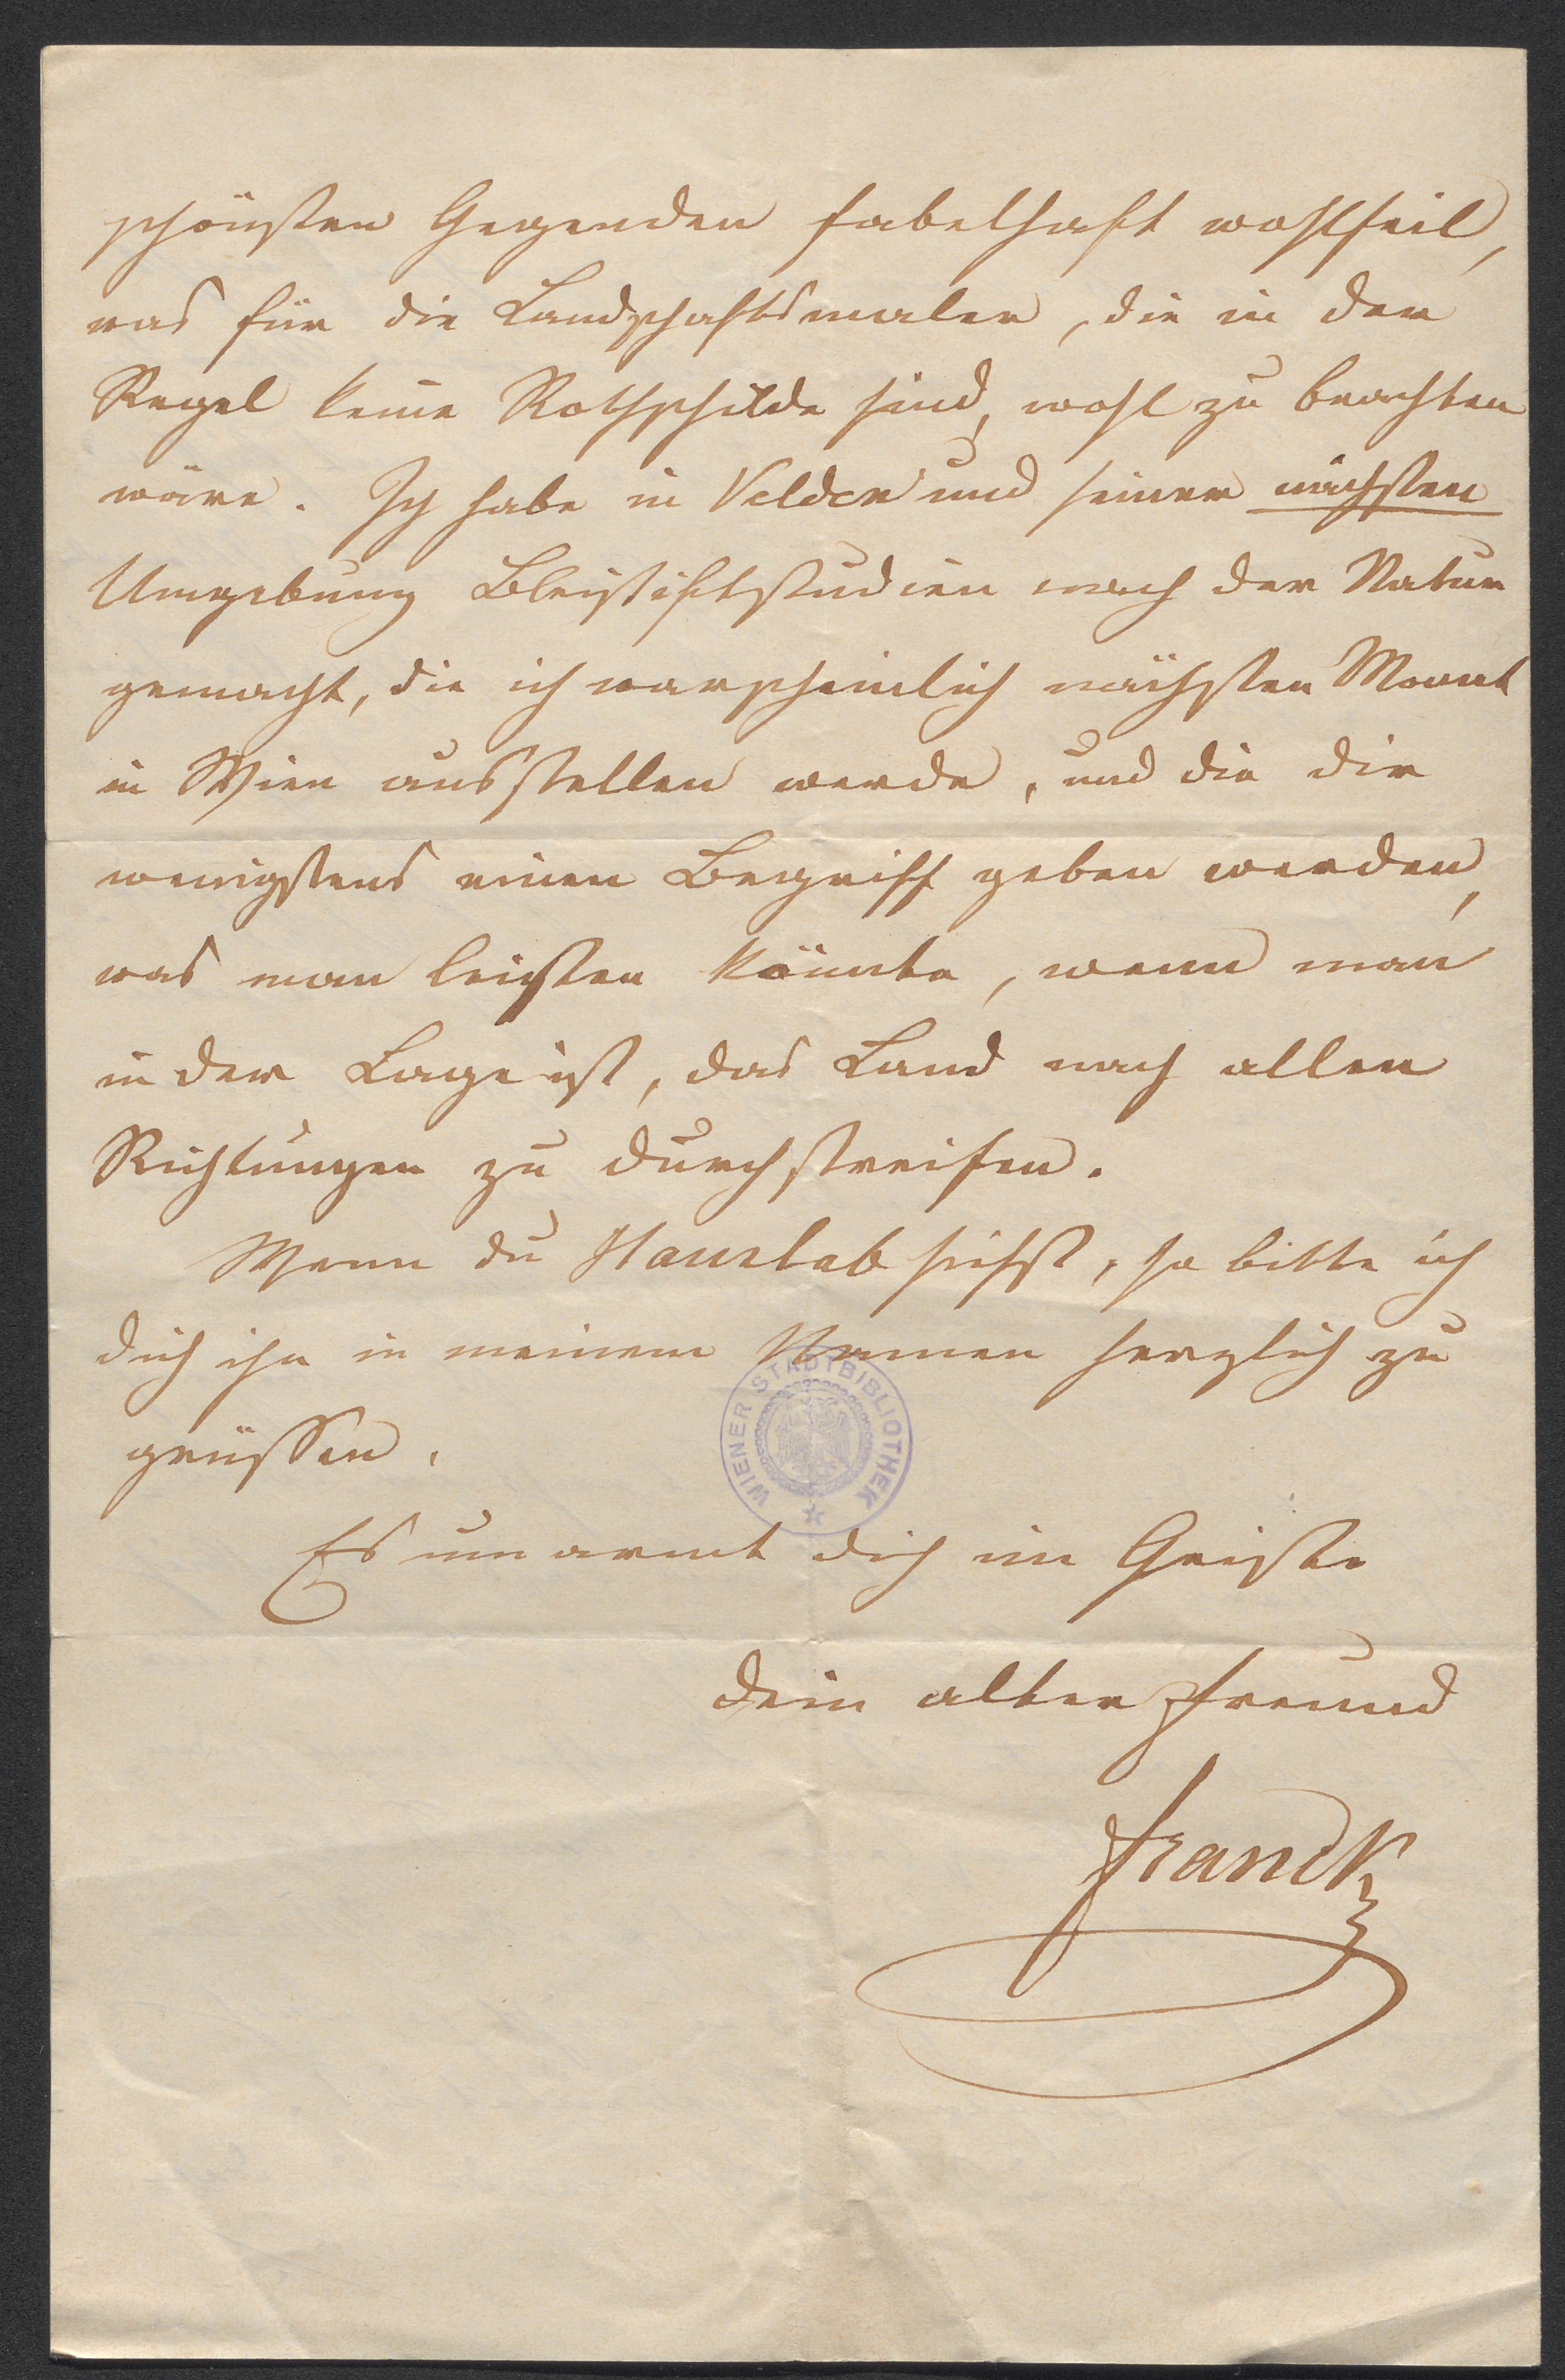 schönsten Gegenden fabelhaft wohlfeil,
was für die Landschaftsmaler, die in der
Regel keine Rothschilde sind, wohl zu beachten
wäre. Ich habe in Velden und seiner nächsten
Umgebung Bleistiftstudien nach der Natur
gemacht, die ich warscheinlich nächsten Monat
in Wien ausstellen werde, und die dir
wenigstens einen Begriff geben werden,
was man leisten könnte, wenn man
in der Lage ist, das Land nach allen
Richtungen zu durchstreifen.
Wenn du Hauslab siehst, so bitte ich
dich ihn in meinem Namen herzlich zu
grüssen.
WIENER STADTBIBLIOTHEK
Es umarmt dich im Geiste
dein alter Freund
Franck